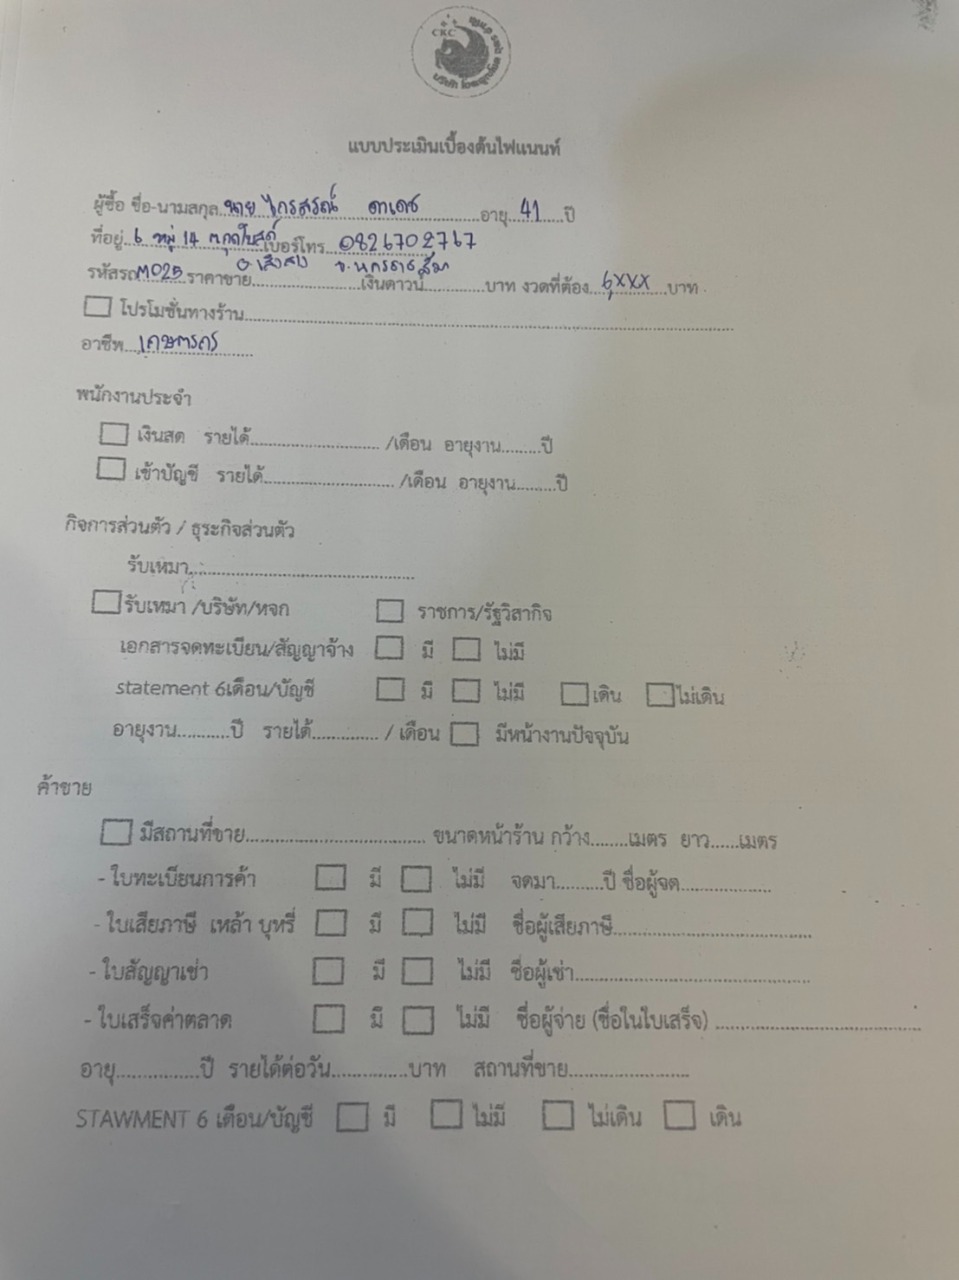 CKC
แบบประเมินเบื้องต้นไฟแนนท์
ผู้ซื้อ ชื่อ-นามสกุล นาย ไกรสรณ์ ดาเดช อายุ 41 ปี
ที่อยู่ 6 หมู่ 14 ต.กุดโบสถ์ เบอร์โทร 0826702767
อ.เสิงสาง จ.นครราชสีมา
รหัสรถ M025 ราคาขาย....................เงินดาวน์............บาท งวดที่ต้อง 6,xxx บาท
โปรโมชั่นทางร้าน....................
อาชีพ เกษตรกร
พนักงานประจำ
เงินสด รายได้.................... /เดือน อายุงาน.........ปี
เข้าบัญชี รายได้.................... /เดือน อายุงาน.........ปี
กิจการส่วนตัว / ธุระกิจส่วนตัว
รับเหมา....................
รับเหมา /บริษัท/หจก ราชการ/รัฐวิสากิจ
เอกสารจดทะเบียน/สัญญาจ้าง มี ไม่มี
statement 6เดือน/บัญชี มี ไม่มี เดิน ไม่เดิน
อายุงาน...........ปี รายได้.............. / เดือน มีหน้างานปัจจุบัน
ค้าขาย
มีสถานที่ขาย.................... ขนาดหน้าร้าน กว้าง........เมตร ยาว......เมตร
- ใบทะเบียนการค้า มี ไม่มี จดมา..........ปี ชื่อผู้จด....................
- ใบเสียภาษี เหล้า บุหรี่ มี ไม่มี ชื่อผู้เสียภาษี....................
- ใบสัญญาเช่า มี ไม่มี ชื่อผู้เช่า....................
- ใบเสร็จค่าตลาด มี ไม่มี ชื่อผู้จ่าย (ชื่อในใบเสร็จ) ....................
อายุ................ปี รายได้ต่อวัน..............บาท สถานที่ขาย....................
STAWMENT 6 เดือน/บัญชี มี ไม่มี ไม่เดิน เดิน